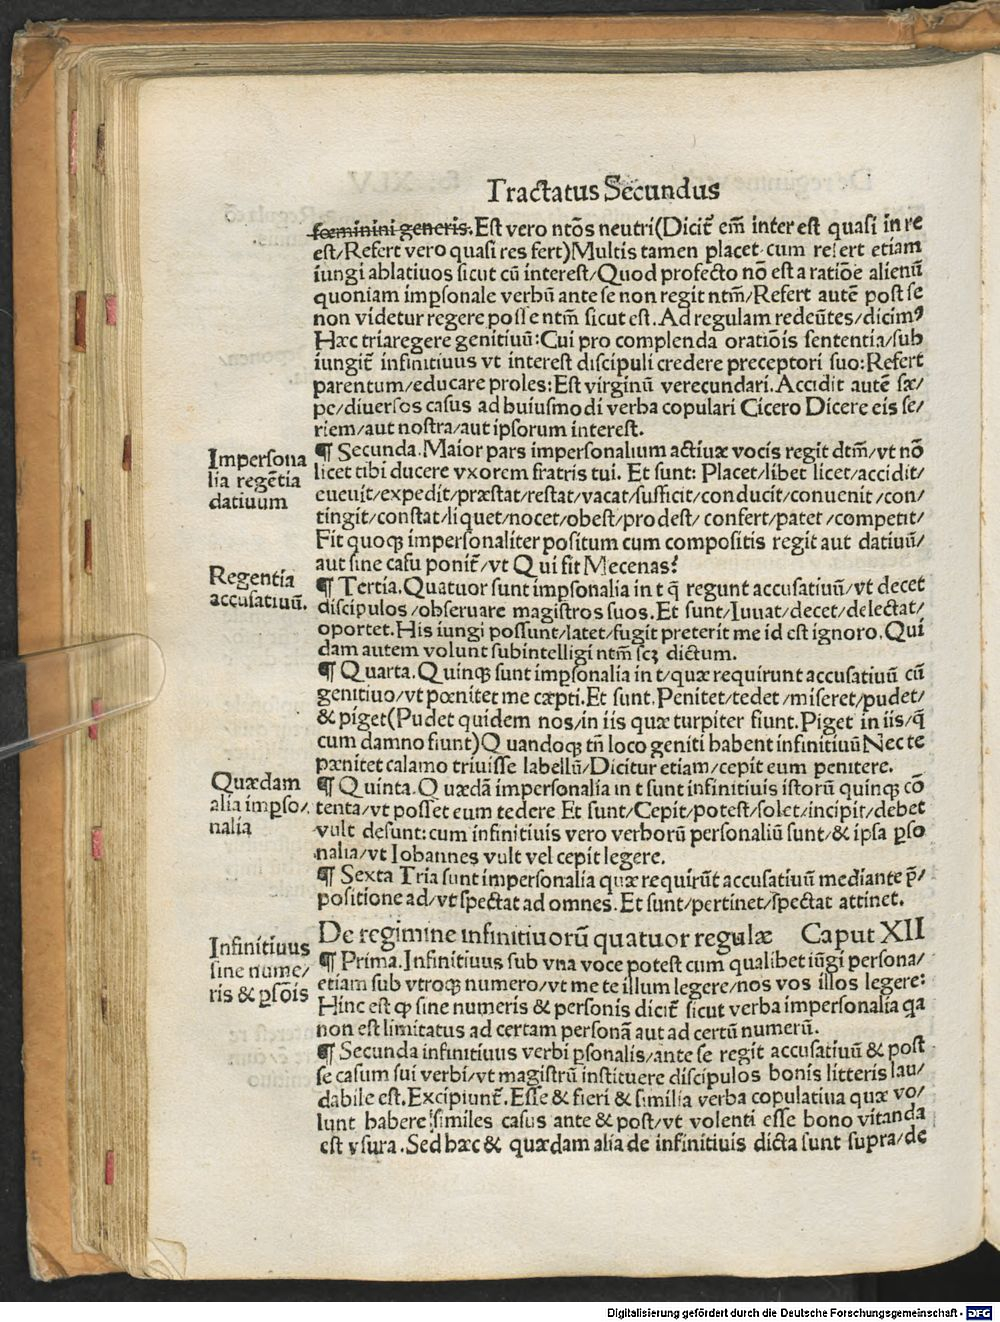 Tractatus Secundus
fœminini generis. Est vero ntōs neutri(Dicit̄ em̄ inter est quasi in re
est/Refert vero quasi res fert)Multis tamen placet cum refert etiam
iungi ablatiuos sicut cū interest/Quod profecto nō est a ratiōe alienū
quoniam imp̱sonale verbū ante se non regit ntm̄/Refert autē post se
non videtur regere posse ntm̄ sicut est. Ad regulam redeūtes/dicimꝰ
Hæc tria regere genitiuū: Cui pro complenda oratiōis sententia/sub
iungit̄ infinitiuus vt interest discipuli credere preceptori suo: Refert
parentum/educare proles: Est virginū verecundari. Accidit autē sæ/
pe/diuersos casus ad huiusmodi verba copulari Cicero Dicere eis se/
riem/aut nostra/aut ipsorum interest.
Impersona
lia regētia
datiuum
¶ Secunda. Maior pars impersonalium actiuæ vocis regit dtm̄/vt nō
licet tibi ducere vxorem fratris tui. Et sunt: Placet/libet licet/accidit/
eueuit/expedit/præstat/restat/vacat/sufficit/conducit/conuenit/con/
tingit/constat/liquet/nocet/obest/prodest/ confert/patet/competit/
Fit quoqꝫ impersonaliter positum cum compositis regit aut datiuū/
aut sine casu ponit̄/vt Qui fit Mecenas?
Regentia
accusatiuū.
¶ Tertia. Quatuor sunt imp̱sonalia in t q̄ regunt accusatiuū/vt decet
discipulos/obseruare magistros suos. Et sunt/Iuuat/decet/delectat/
oportet. His iungi possunt/latet/fugit preterit me id est ignoro. Qui
dam autem volunt subintelligi ntm̄ scꝫ dictum.
¶ Quarta. Quinqꝫ sunt imp̱sonalia in t/quæ requirunt accusatiuū cū
genitiuo/vt pœnitet me cæpti. Et sunt. Penitet/tedet/miseret/pudet/
& piget(Pudet quidem nos/in iis quæ turpiter fiunt. Piget in iis/q̄
cum damno fiunt)Quandoqꝫ tn̄ loco geniti habent infinitiuū Nec te
pænitet calamo triuisse labellū/Dicitur etiam/cepit eum penitere.
Quædam
alia imp̱so/
nalia
¶ Quinta. Quædā impersonalia in t sunt infinitiuis istorū quinqꝫ cō
tenta/vt posset eum tedere Et sunt/Cepit/potest/solet/incipit/debet
vult desunt: cum infinitiuis vero verborū personaliū sunt/& ipsa p̱so
nalia/vt Iohannes vult vel cepit legere.
¶ Sexta Tria sunt impersonalia quæ requirūt accusatiuū mediante p̄/
positione ad/vt spectat ad omnes. Et sunt/pertinet/spectat attinet.
De regimine infinitiuorū quatuor regulæ Caput XII
Infinitiuus
sine nume/
ris & p̱sōis
¶ Prima. Infinitiuus sub vna voce potest cum qualibet iūgi persona/
etiam sub vtroqꝫ numero/vt me te illum legere/nos vos illos legere:
Hinc est ꝙ sine numeris & personis dicit̄ sicut verba impersonalia qa
non est limitatus ad certam personā aut ad certū numerū.
¶ Secunda infinitiuus verbi p̱sonalis/ante se regit accusatiuū & post
se casum sui verbi/vt magistrū instituere discipulos bonis litteris lau/
dabile est. Excipiunt̄. Esse & fieri & similia verba copulatiua quæ vo/
lunt habere similes casus ante & post/vt volenti esse bono vitanda
est vsura. Sed hæc & quædam alia de infinitiuis dicta sunt supra/de
Digitalisierung gefördert durch die Deutsche Forschungsgemeinschaft - DFG